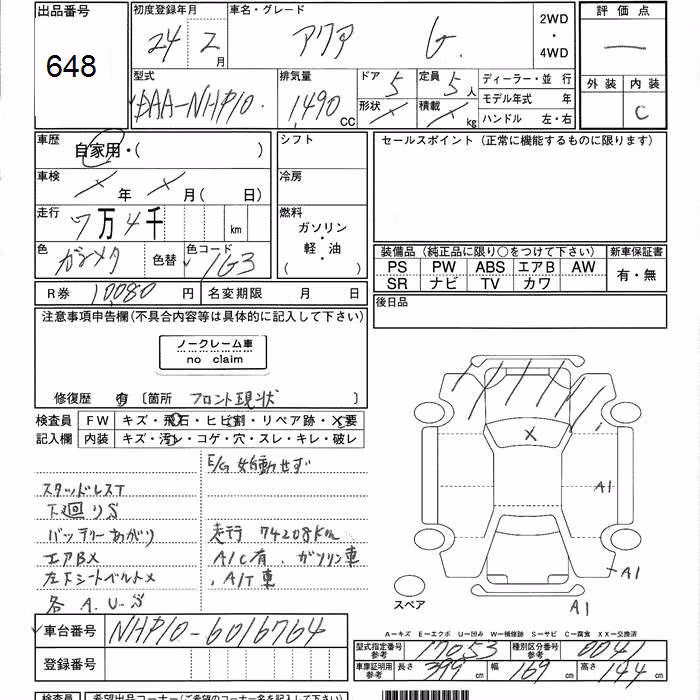 出品番号 648
初度登録年月 24 2 月
車名・グレード アクア G
2WD ・ 4WD
評価点 —
外装 内装 C
型式 DAA-NHP10
排気量 1490 CC
ドア 5 定員 5 人
形状 × 積載 × kg
ディーラー・並 行
モデル年式 年
ハンドル 左・右
車歴 自家用・( )
車検 × 年 × 月( 日)
走行 7万4千 km
色 ガンメタ 色替 色コード 1G3
シフト
冷房
燃料 ガソリン・軽・油 ( )
セールスポイント (正常に機能するものに限ります)
装備品 (純正品に限り○をつけて下さい) 新車保証書
PS PW ABS エアB AW 有・無
SR ナビ TV カワ
後日品
R券 10080 円 名変期限 月 日
注意事項申告欄(不具合内容等は具体的に記入して下さい)
ノークレーム車
no claim
修復歴 有 〔箇所 フロント現状 〕
検査員 FW キズ・飛石・ヒビ割・リペア跡・X要
記入欄 内装 キズ・汚レ・コゲ・穴・スレ・キレ・破レ
E/G 始動せず
スタッドレスT
下廻りS
バッテリーあがり 走行 74208Km
エアBX A/C有、ガソリン車
左下シートベルトメ 、A/T車
各 A.U.S
X
A1
A1
A1
スペア
A-キズ E-エクボ U-凹み W-補修跡 S-サビ C-腐食 XX-交換済
車台番号 NHP10-6016764
登録番号
型式指定番号 参考 17053 種別区分番号 参考 0041
車庫証明用 参考 長さ 399 cm 幅 169 cm 高さ 144 cm
検査員 希望出品コーナー(ご希望のコーナー名を記入して下さい)